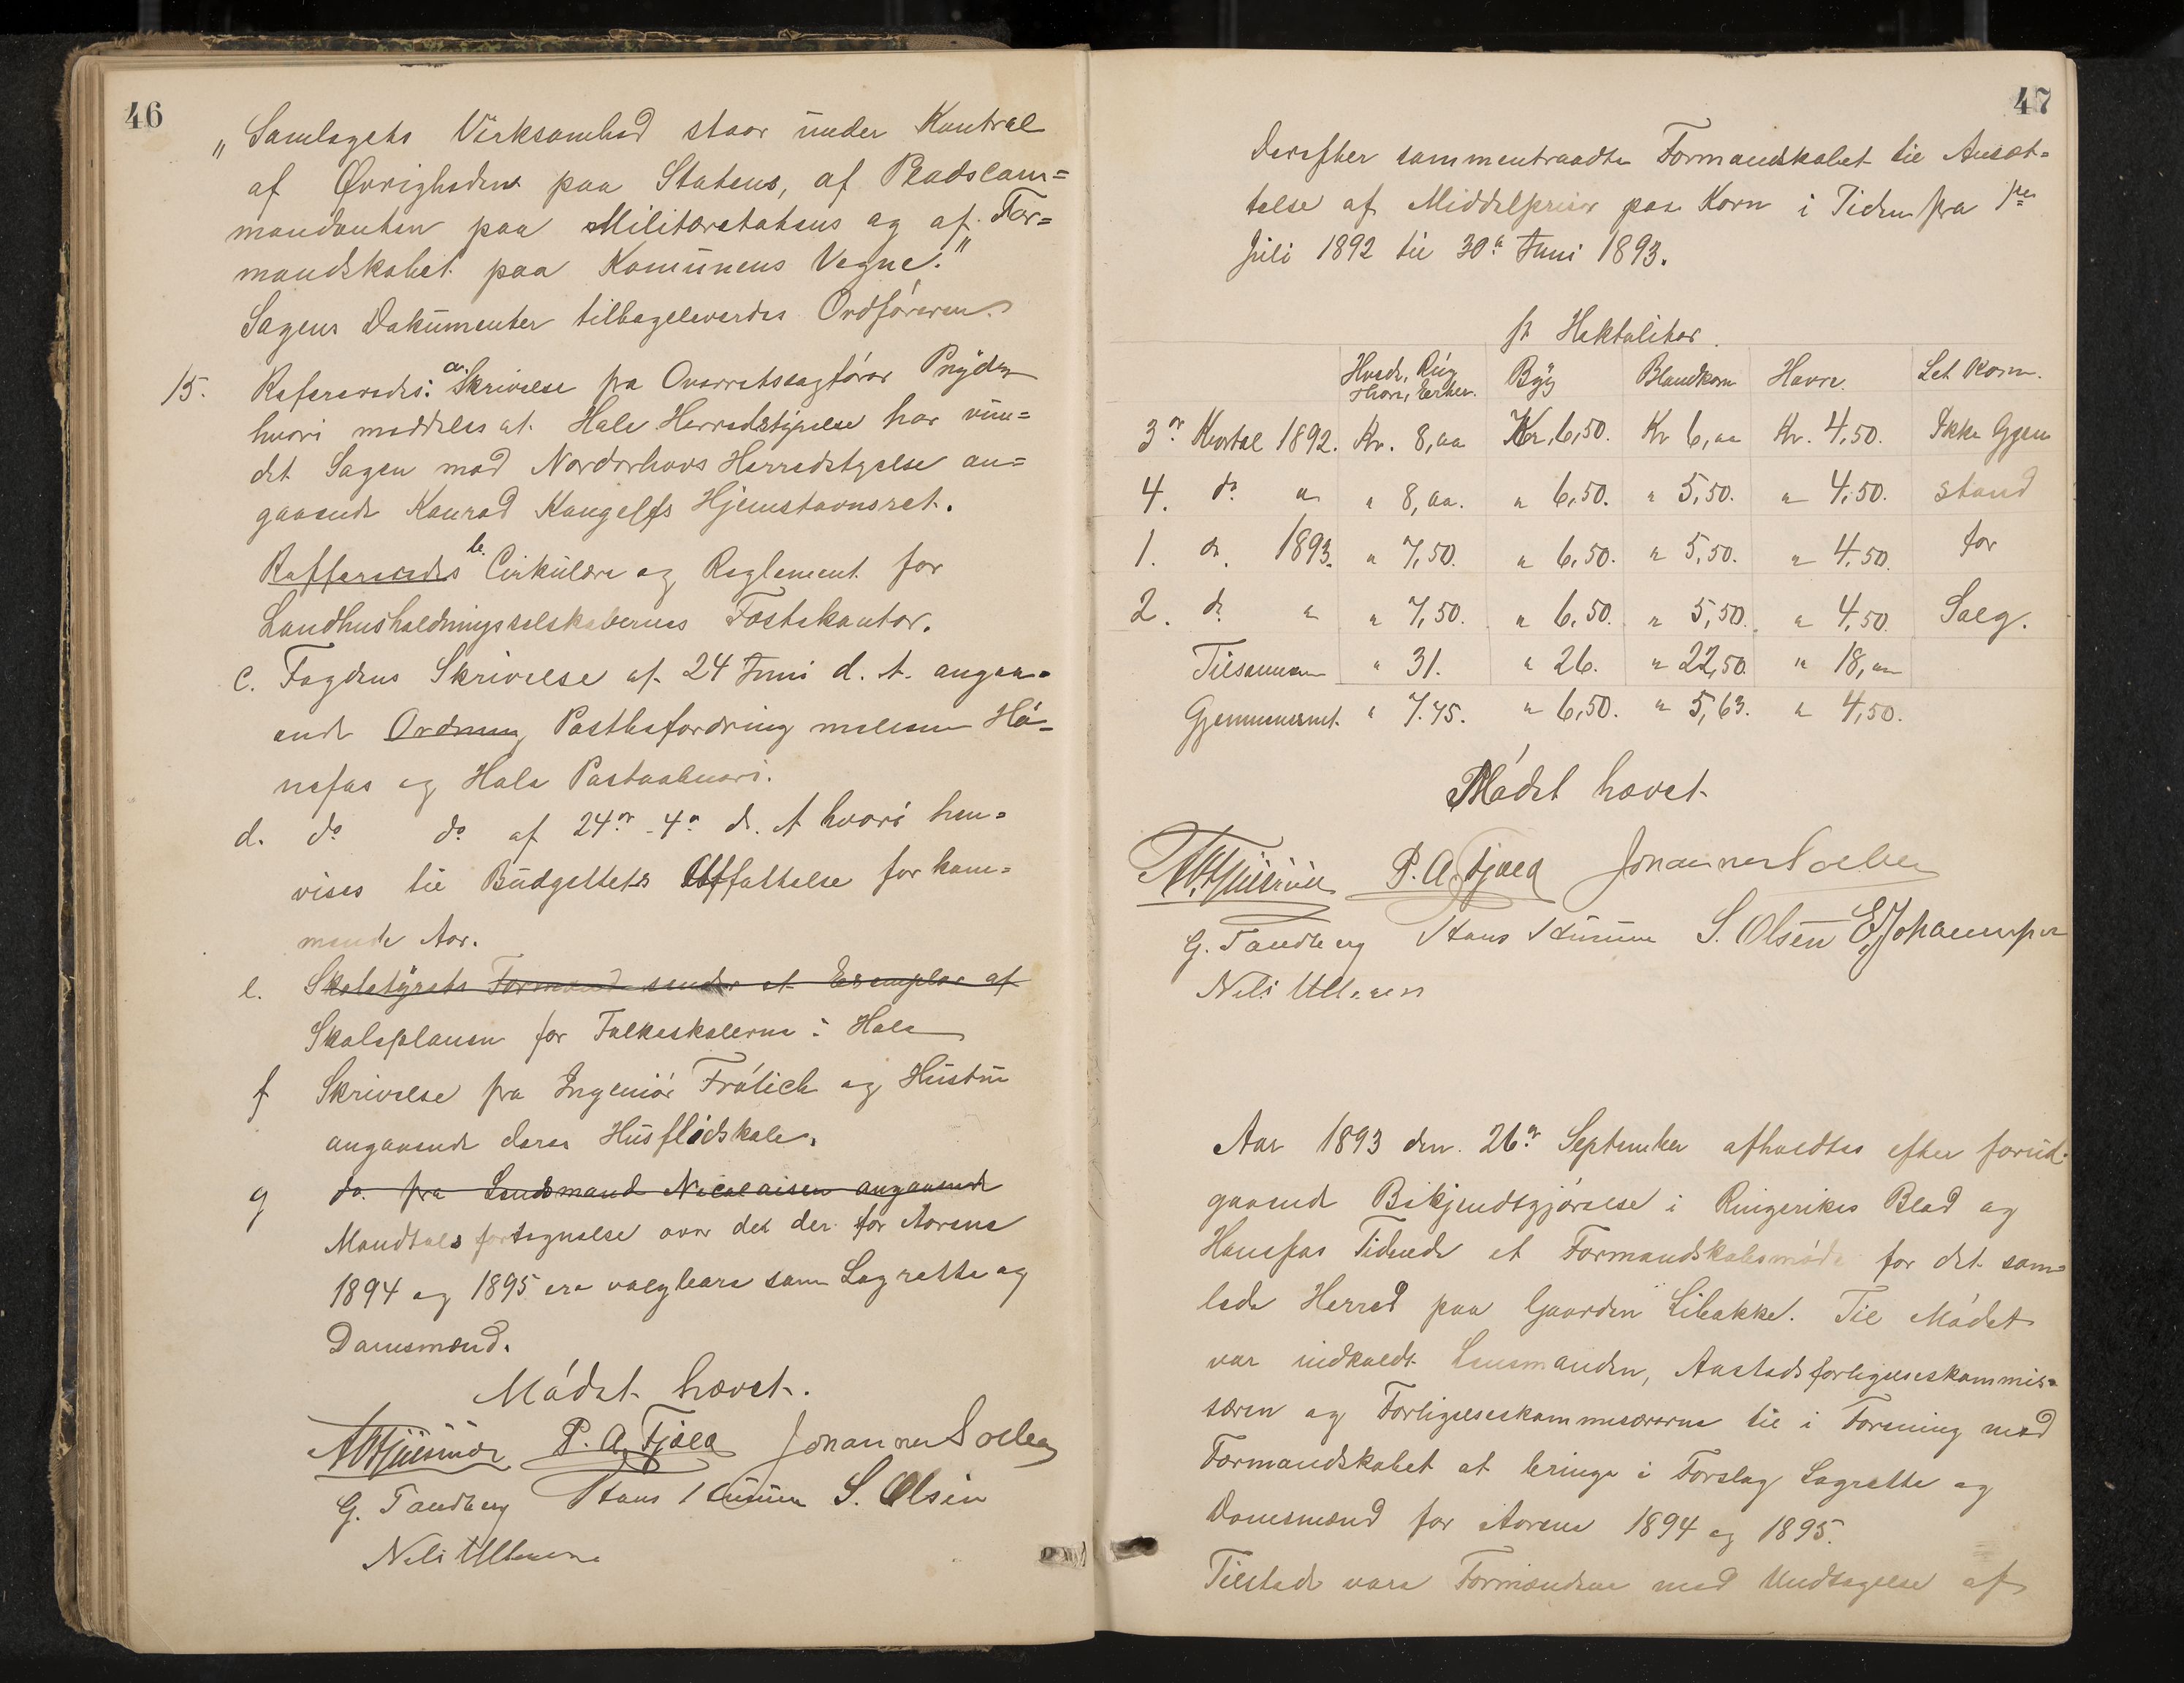 46
„Samlagets Virksomhed staar under Kontrol
af Øvrigheden paa Statens, af Pladscom=
mandanten paa Militæretatens og af For=
mandskabet paa Komunens Vegne."
Sagens Dokumenter tilbageleverdes Ordføreren.
15. Refereredes: a. Skrivelse fra Overretssagfører Prydz
hvori meddeles at Hole Herredstyrelse har vun=
det Sagen mod Norderhovs Herredstyrelse an=
gaaende Konrad Hjemstavnsret.
Reffereredes b. Cirkulære og Reglement for
Landhusholdningsselskabernes Fæstekontor.
c. Fogdens Skrivelse af 24 Juni d. A. angaa=
ende Ordning Postbefordring mellem Hø=
nefos og Hole Postaabneri.
d. do do af 24de 4de d. A hvori hen=
vises til Budgettets Affattelse for kom=
mende Aar.
e. Skolstyrets Formand sender et Exemplar af
Skoleplanen for Folkeskolerne i Hole
f Skrivelse fra Ingeniør Frølich og Hustru
angaaende deres Husflidskole.
g do. fra Lensmand Nicolaisen angaaende
Mandtalsfortegnelse over det der for Aarene
1894 og 1895 ere valgbare som Lagrette og
Domsmænd.
Mødet hævet.
P. A. Fjeld Johannes Solberg
G. Tandberg Hans S. Olsen
Nils Ultveen
47
Derefter sammentraadte Formandskabet til Ansæt=
telse af Middelpriser paa Korn i Tiden fra 1ste
Juli 1892 til 30te Juni 1893.
pr Hektoliter.
Hvede, Rug Byg Blandkorn Havre. Let Korn.
Erter.
3die Kvartal 1892. Kr. 8,00 Kr. 6,50. Kr 6,00 Kr. 4,50. Ikke Gjen
4. do " " 8,00. " 6,50. " 5,50. " 4,50. stand
1. do. 1893. " 7,50. " 6,50. " 5,50. " 4,50. for
2. do " " 7,50. " 6,50. " 5,50. " 4,50. Salg.
Tilsammen " 31. " 26. " 22,50. " 18,00
Gjennemsnit. " 7.75. " 6,50. " 5,63. " 4,50.
Mødet hævet
P. A. Fjeld Johannes Solberg
G. Tandberg Hans S. Olsen E. Johannesen
Nils Ultveen
Aar 1893 den 26de September afholdtes efter forud=
gaaende Bekjendtgjørelse i Ringerikes Blad og
Hønefos Tidende et Formandskabsmøde for det sam=
lede Herred paa Gaarden Libakke. Til Mødet
var indkaldt Lensmanden, Aastedsforligelseskommis=
særen og Forligelseskommissærerne til i Forening med
Formandskabet at bringe i Forslag Lagrette og
Domsmænd for Aarene 1894 og 1895.
Tilstede vare Formændene med Undtagelse af